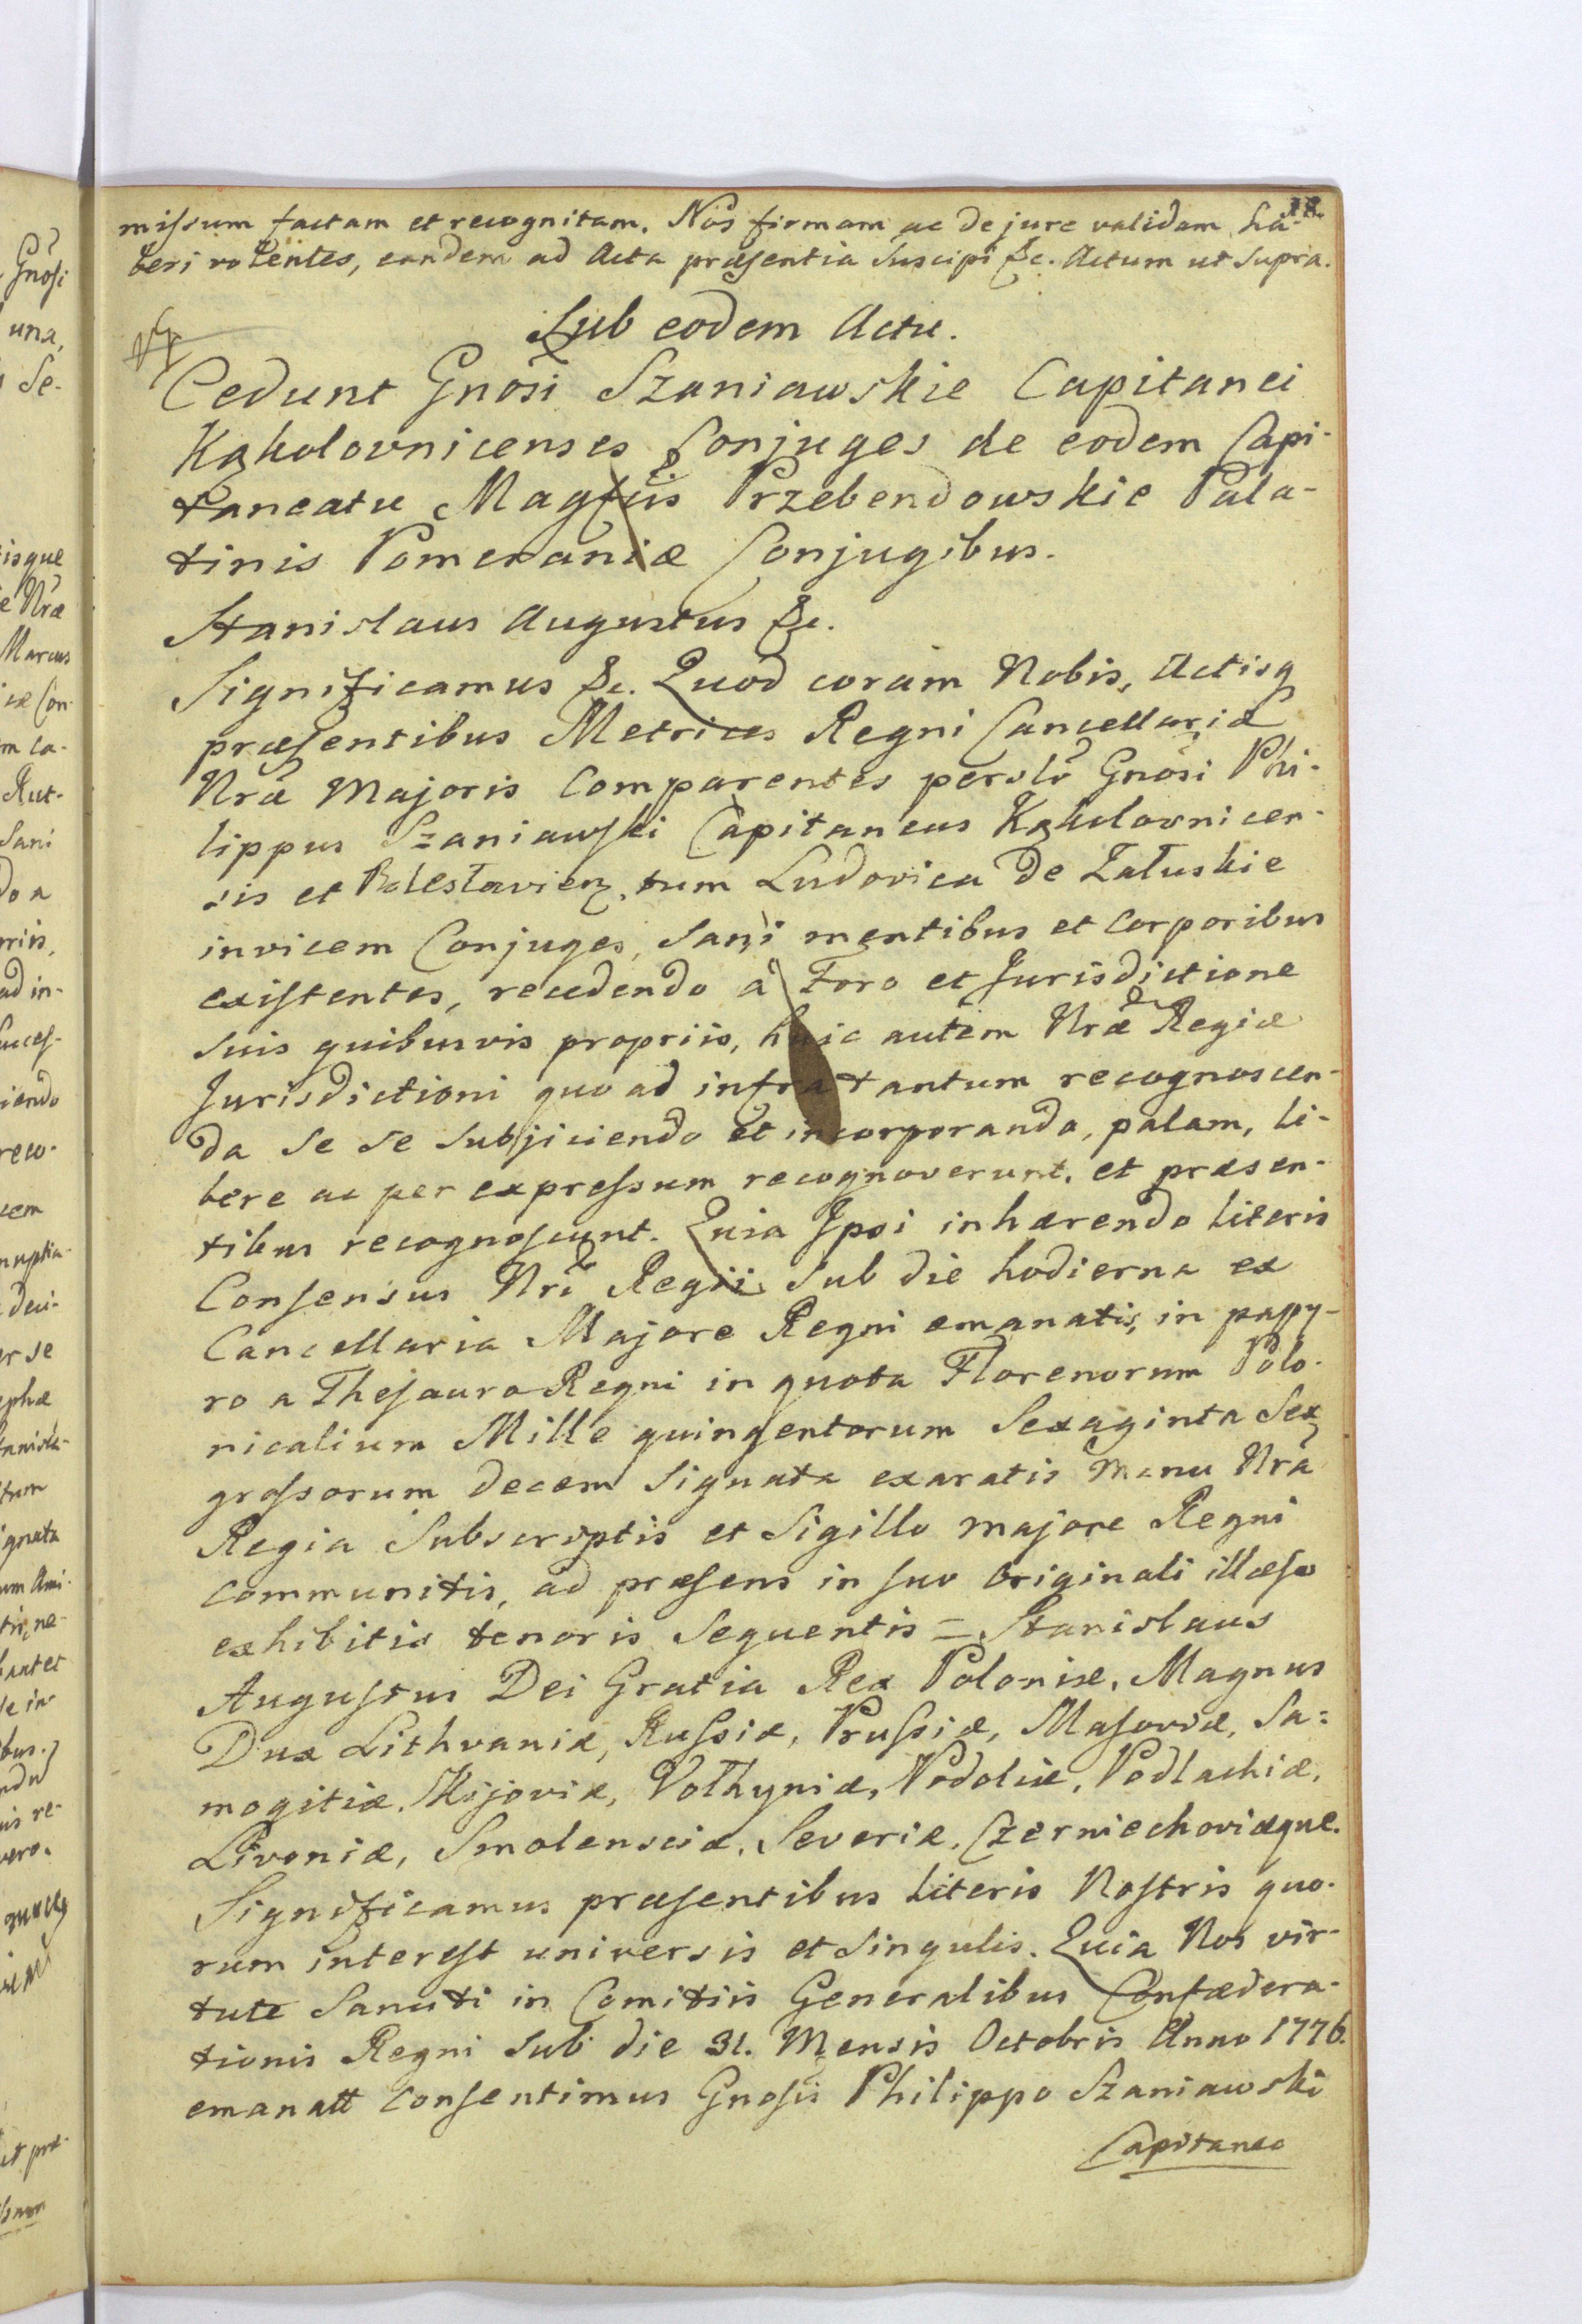 missum factam et recognitam. Nos firmam ac de jure validam ha-
beri volentes, eandem ad Acta præsentia suscipi &c. Actum ut supra.
Sub eodem Actu.
Cedunt Gnosi Szaniawskie Capitanei
Kąkolovnicenses Conjuges de eodem Capi-
taneatu Magfiis Przebendowskie Pala-
tinis Pomeraniæ Conjugibus.
Stanislaus Augustus &c.
Significamus &c. Quod coram Nobis, Actisq
præsentibus Metrices Regni Cancellariæ
Nræ Majoris Comparentes perslr Gnosi Phi-
lippus Szaniawski Capitaneus Kąkolovnicen-
sis et Bolestavien, tum Ludovica de Załuskie
invicem Conjuges, Sani mentibus et Corporibus
existentes, recedendo a Foro et Jurisdictione
suis quibusvis propriis, huic autem Nræ Regiæ
Jurisdictioni quo ad infra tantum recognoscen-
da se se subjiciendo et incorporando, palam, li-
bere ac per expressum recognoverunt, et præsen-
tibus recognoscunt. Quia Ipsi inhærendo literis
Consensus Nri Regii sub die hodierna ex
Cancellaria Majore Regni emanatis, in papy-
ro a Thesauro Regni in quota Florenorum Polo-
nicalium Mille quingentorum Sexaginta Sex
grossorum decem signata exaratis Manu Nra
Regia Subscriptis et Sigillo majore Regni
communitis, ad præsens in suo Originali illæso
exhibitis tenoris sequentis = Stanislaus
Augustus Dei Gratia Rex Poloniæ, Magnus
Dux Lithvaniæ, Russiæ, Prussiæ, Masoviæ, Sa=
mogitiæ, Kijoviæ, Volhyniæ, Podoliæ, Podlachiæ,
Livoniæ, Smolensciæ, Severiæ, Czerniechoviæque.
Significamus præsentibus literis Nostris quo-
rum interest universis et singulis. Quia Nos vir-
tute Sanciti in Comitiis Generalibus Confœdera-
tionis Regni sub die 31. Mensis Octobris Anno 1776.
emanatt consentimus Gnosis Philippo Szaniawski
Capitaneo